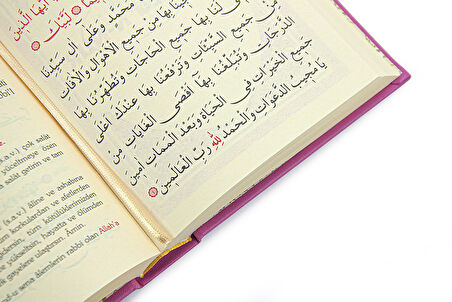 اَيُّهَا الَّذِينَ
لَبَّيْكَ
مُحَمَّدٍ وَعَلَى آلِ سَيِّدِنَا
بِهَا مِنْ جَمِيعِ الْاَهْوَالِ وَالْآفَاتِ
لَنَا بِهَا جَمِيعَ الْحَاجَاتِ وَتُطَهِّرُنَا بِهَا
جَمِيعِ السَّيِّئَاتِ وَتَرْفَعُنَا بِهَا عِنْدَكَ اَعْلَى
الدَّرَجَاتِ وَتُبَلِّغُنَا بِهَا اَقْصَى الْغَايَاتِ مِنْ
جَمِيعِ الْخَيْرَاتِ فِي الْحَيَاةِ وَبَعْدَ الْمَمَاتِ اٰمِينَ
يَا مُجِيبَ الدَّعَوَاتِ وَالْحَمْدُ لِلّٰهِ رَبِّ الْعَالَمِينَ
(s.a.v.) çok salât
yüceltmeye özen
salât getirin ve tam
(s.a.v.) âline ve ashabına
korkulardan ve afetlerden
tüm kötülüklerimizden
yükseltsin, hayatta ve ölümden
gayelere ulaştıran. Âmin.
sena âlemlerin rabbi olan Allah'a